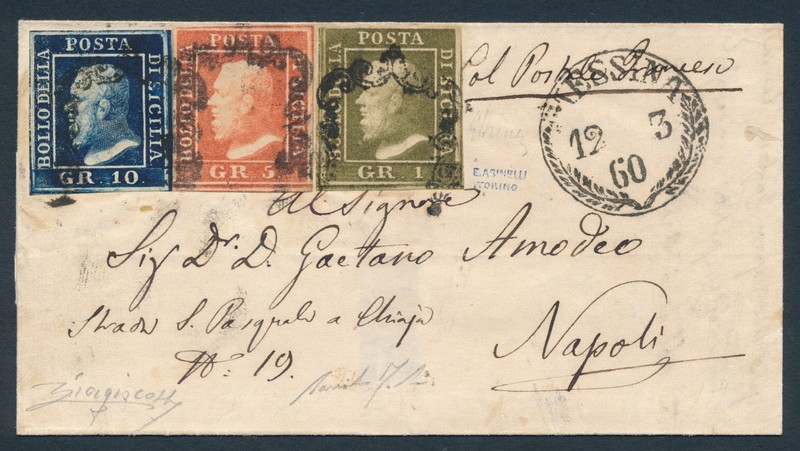 POSTA
BOLLO DELLA
DI SICILIA
GR. 10.
POSTA
BOLLO DELLA
SICILIA
GR. 5.
POSTA
DI SICILIA
GR. 1
Col Postale Francese
MESSINA
12 3
60
E. ASINELLI
TORINO
Al Signore
Sig. Dr. D. Gaetano Amodeo
Strada S. Pasquale a Chiaja
No: 19.
Napoli